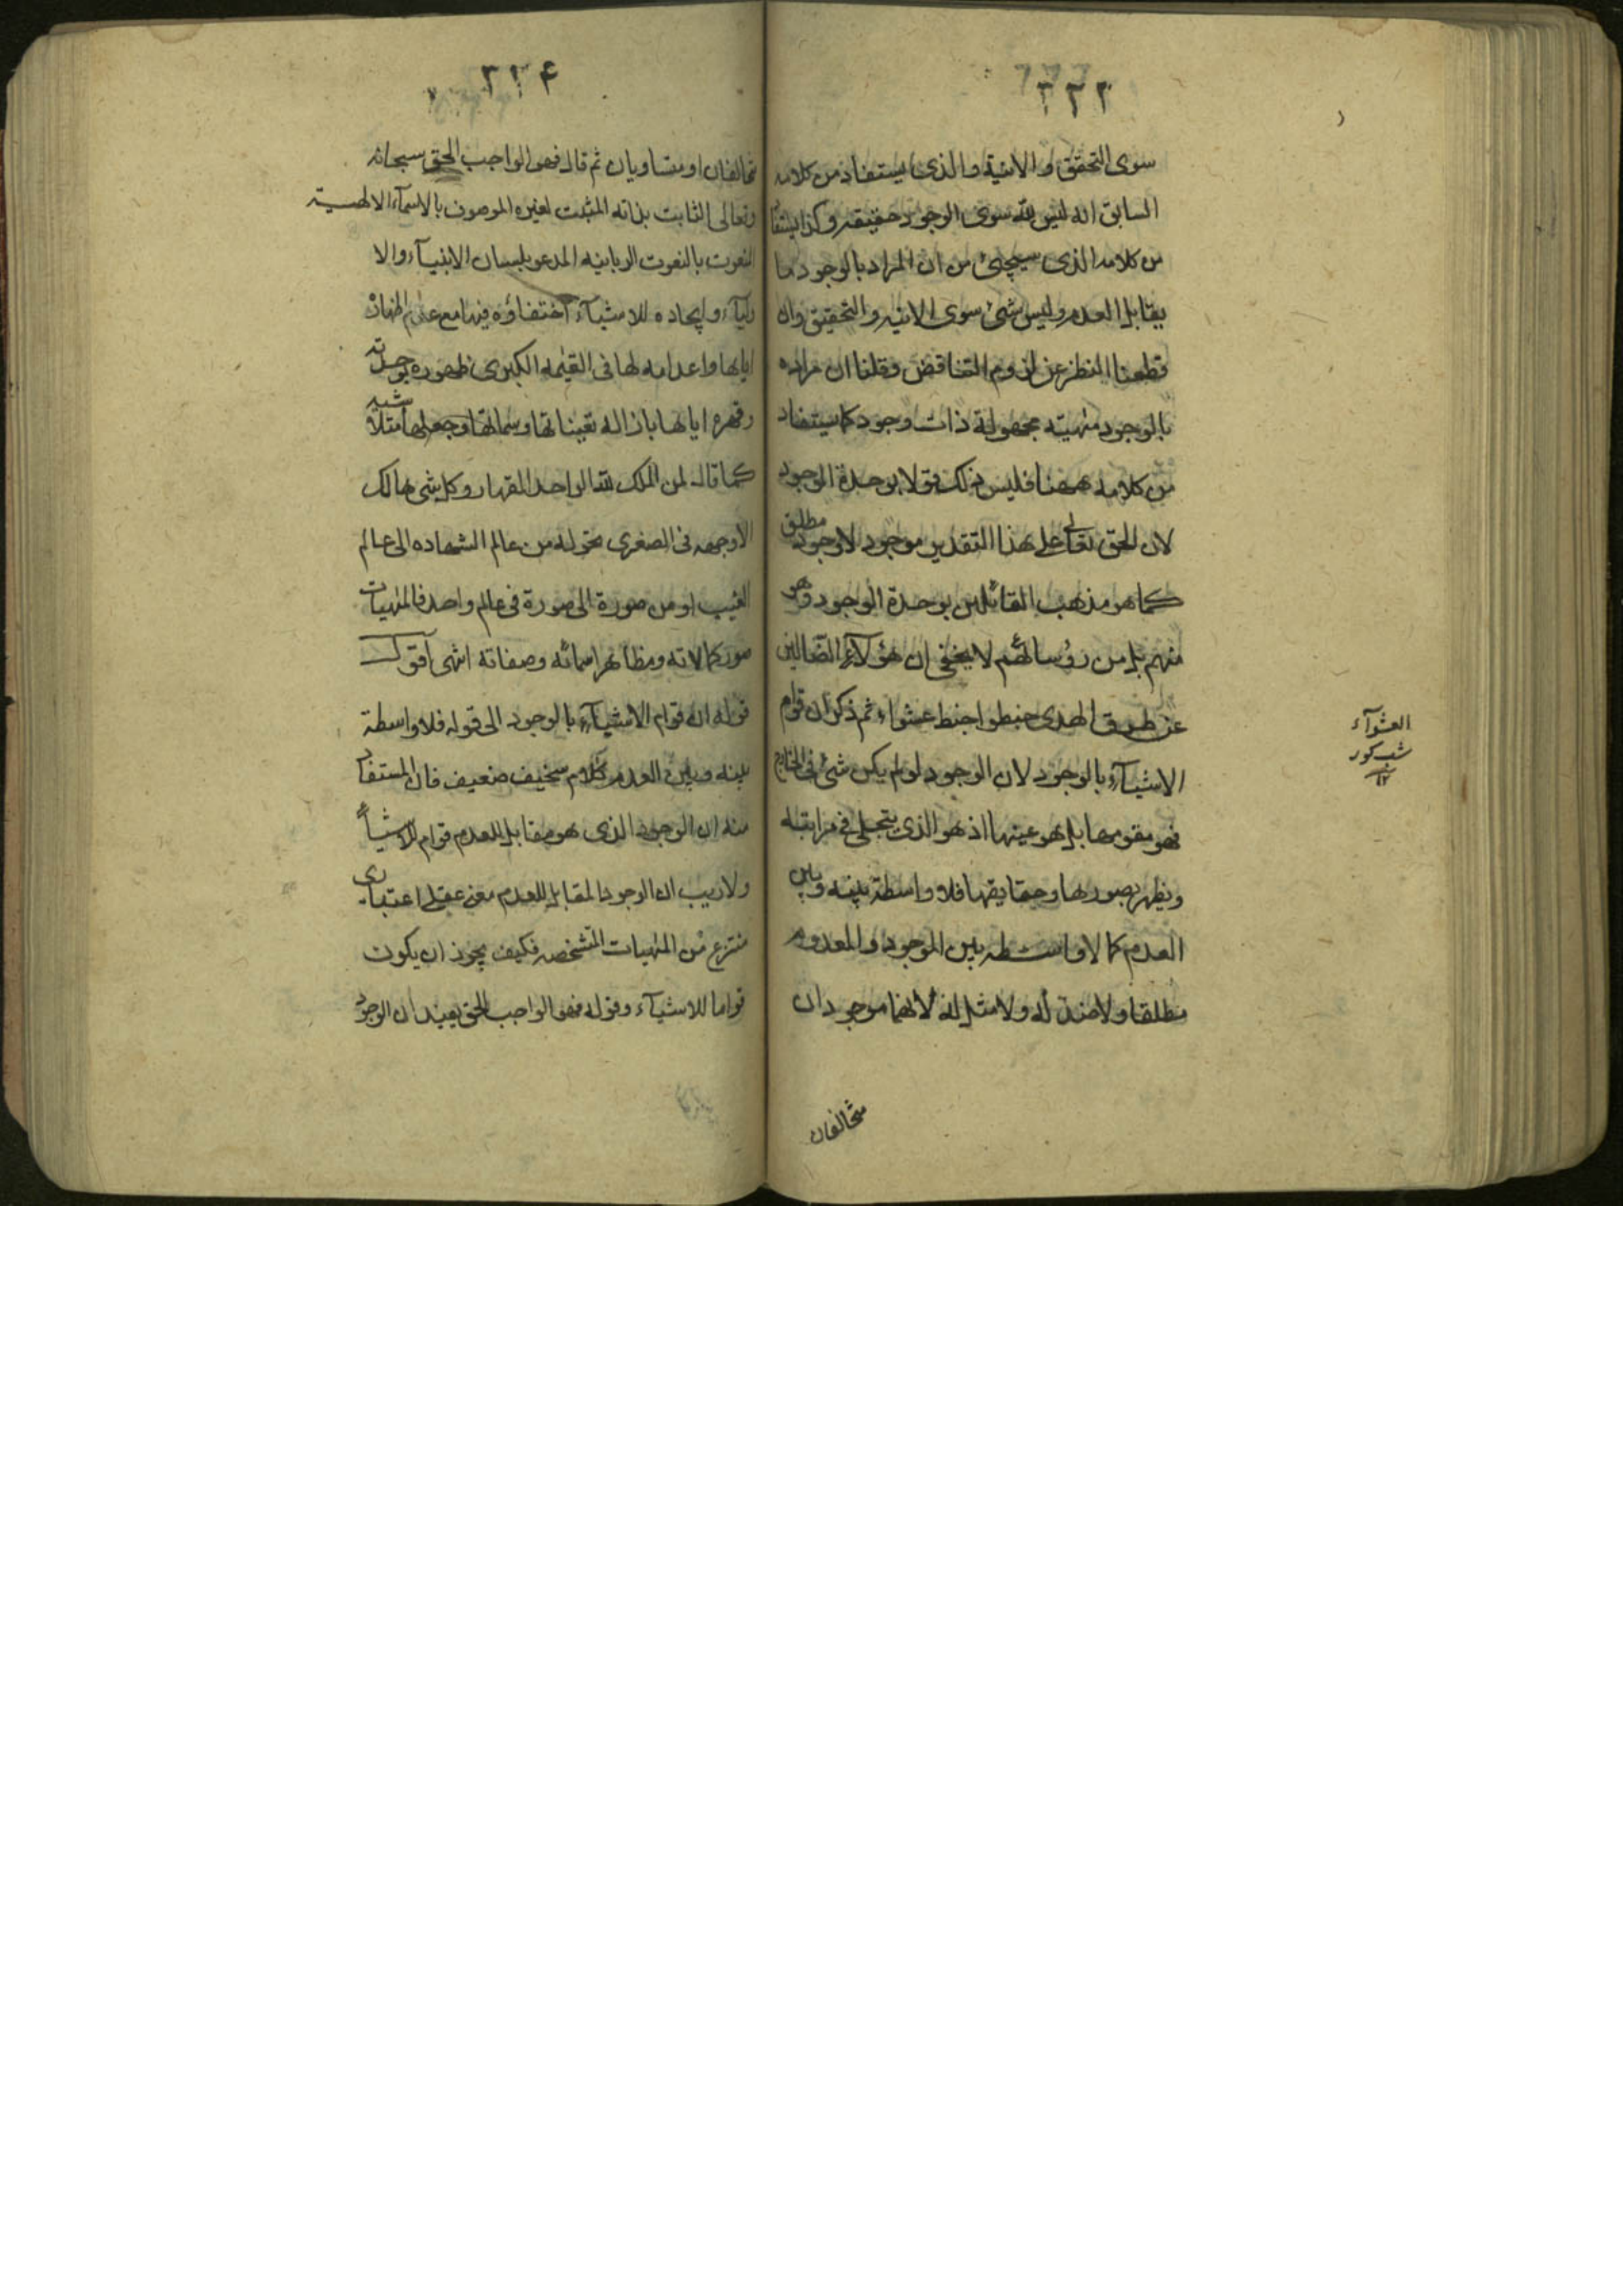 ٢٢٣
سوى التحقق والانية والذى يستفاد من كلامه
السابق انه ليس لله سوى الوجود حقيقة وكذا يستفا
من كلامه الذى سيجئ من ان المراد بالوجود ما
يقابل العدم وليس شئ سوى الانيه والتحقيق وان
قطعنا النظر عن لزوم التناقض وقلنا ان مراده
بالوجود مهيته مجهولة ذات وجود كما يستفاد
من كلامه ههنا فليس ذلك قولا بوحدة الوجود
لان الحق تعالى على هذا التقدير موجود لا وجود مطلق
كما هو مذهب القائلين بوحدة الوجود وهو
منهم بل من رؤسائهم لا يخفى ان هؤلاء الضالين
عن طريق الهدى خبطوا خبط عشواء ثم ذكر ان قوام
الاشياء بالوجود لان الوجود لو لم يكن شئ فى الخارج
فهو مقومها بل هو عينها اذ هو الذى يتجلى فى مراتبه
ويظهر بصورها وحقايقها فلا واسطة بينه وبين
العدم كما لا واسطه بين الموجود والمعدوم
مطلقا ولا ضد له ولا مثل له لانهما موجودان
متخالفان
العشوآء
شب كور
١٢
٢٢٤
متخالفان او متساويان ثم قال فهو الواجب الحق سبحانه
وتعالى الثابت بذاته المثبت لغيره الموصوف بالاسمآء الالهية
المنعوت بالنعوت الربانيه المدعو بلسان الانبيآء والا
وليآء وايجاده للاشيآء اختفاؤه فيها مع
اياها واعدامه لها فى القيمه الكبرى ظهوره بوحدته
وقهره اياها بازاله تعيناتها وسماتها وجعلها متلاشيه
كما قال لمن الملك لله الواحد القهار وكل شى هالك
الا وجهه فى الصغرى تحوله من عالم الشهاده الى عالم
الغيب او من صورة الى صورة فى عالم واحد فالمهيات
صور كمالاته ومظاهر اسمائه وصفاته انتهى آقول
قوله ان قوام الاشيآء بالوجود الى قوله فلا واسطة
بينه وبين العدم كلام سخيف ضعيف فان المستفاد
منه ان الوجود الذى هو مقابل للعدم قوام للاشيآء
ولا ريب ان الوجود المقابل للعدم معنى عقلى اعتبارى
منتزع من المهيات المتشخصه فكيف يجوز ان يكون
قواما للاشيآء وقوله فهو الواجب الحق يفيد ان الوجود